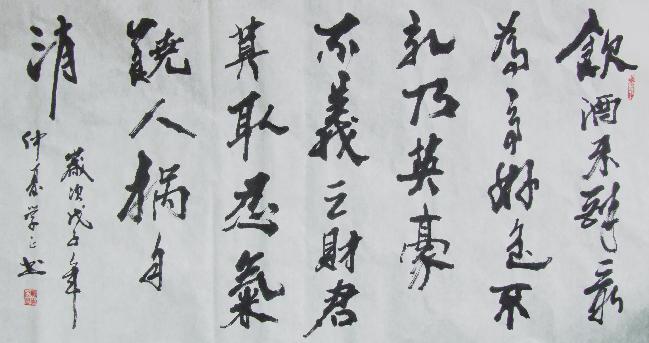 飲酒不醉最
為高好色不
乱乃英豪
不義之財君
莫取忍氣
饒人禍自
消
歲次戊子年
仲春学正书